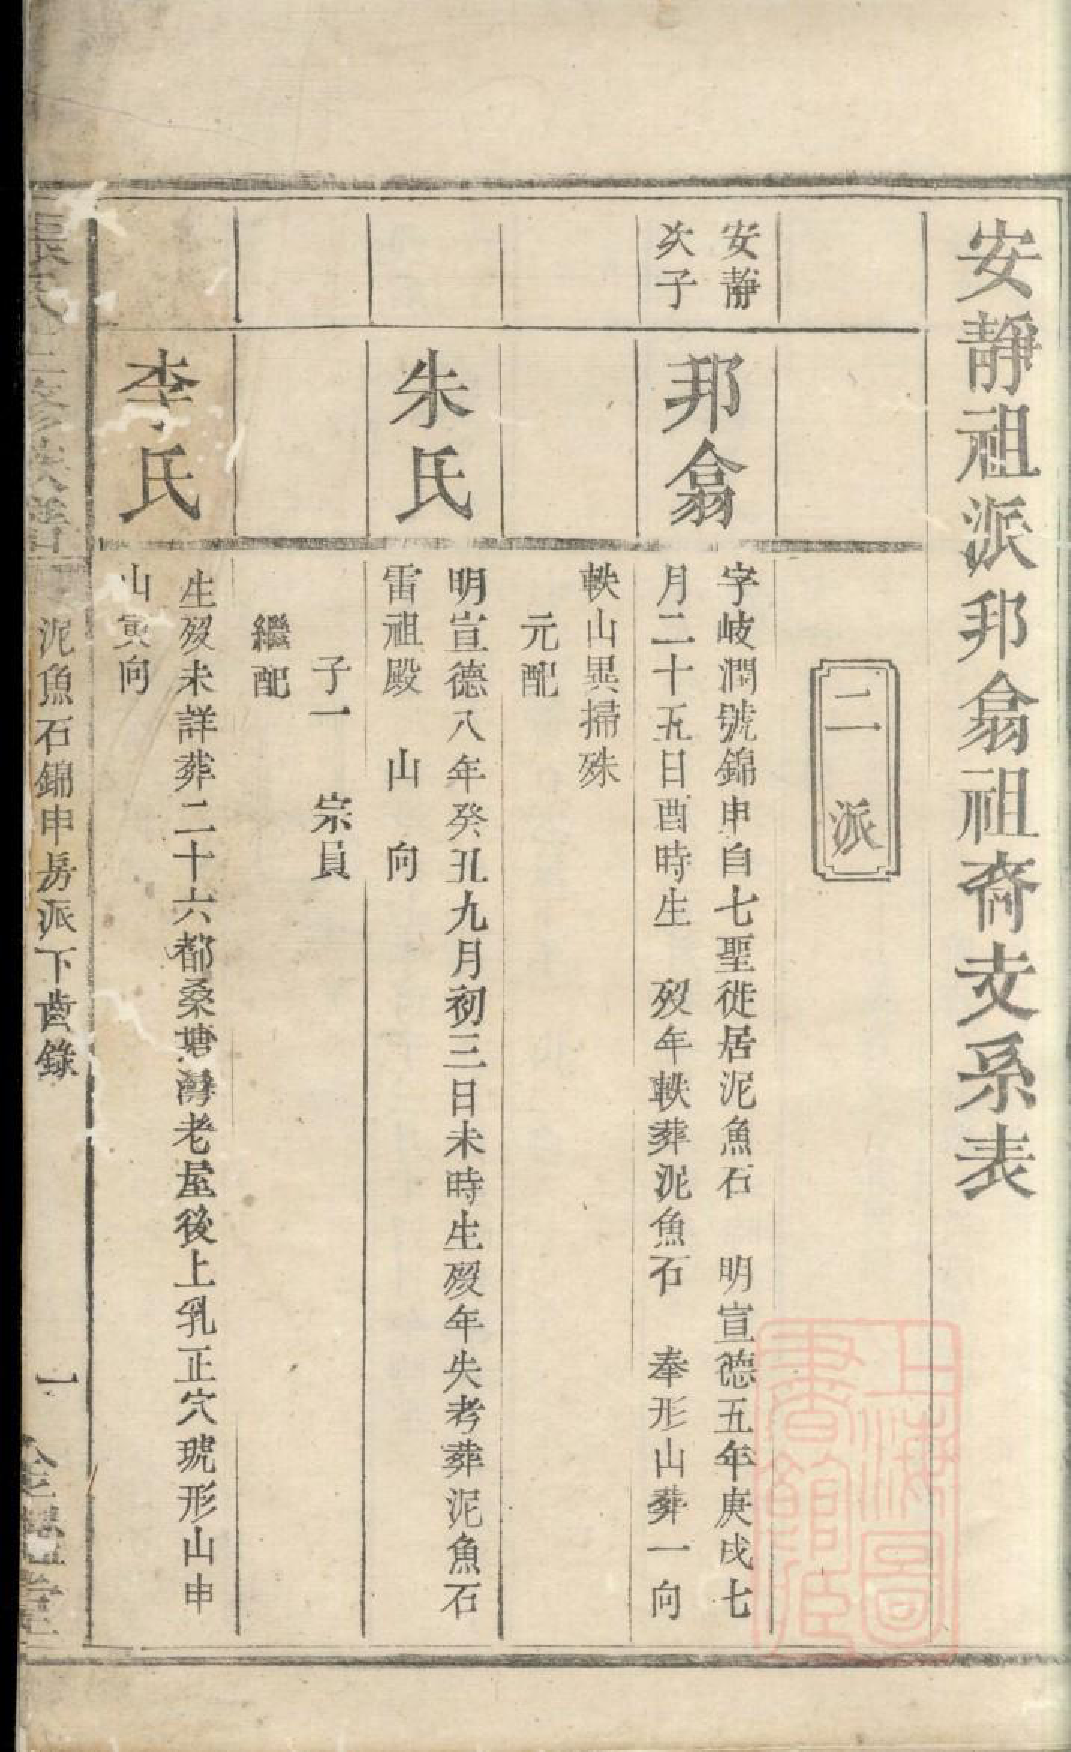 安靜祖派邦翕祖裔支系表
二派
安靜
次子
邦翕
字岐潤號錦申自七聖徙居泥魚石　明宣德五年庚戌七
月二十五日酉時生　歿年軼葬泥魚石　奉形山葬一向
軼山異掃殊
元配
朱氏
明宣德八年癸丑九月初三日未時生歿年失考葬泥魚石
雷祖殿　山　向
子一　宗員
繼配
李氏
生歿未詳葬二十六都桑塘灣老屋後上乳正穴琥形山申
山寅向
張氏三修族譜
泥魚石錦申房派下齒錄
一
上海圖書館藏